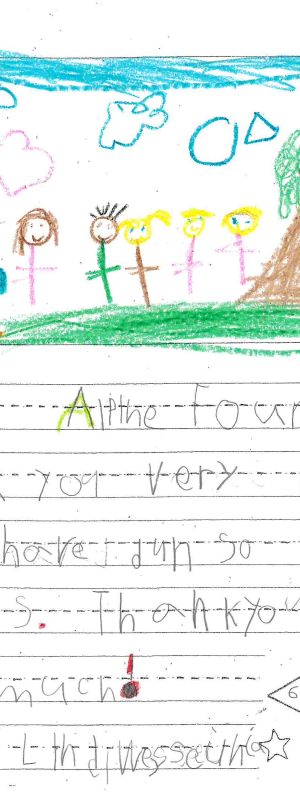 Alpthe Four
you very
have dun so
s. Thankyou
much!
6